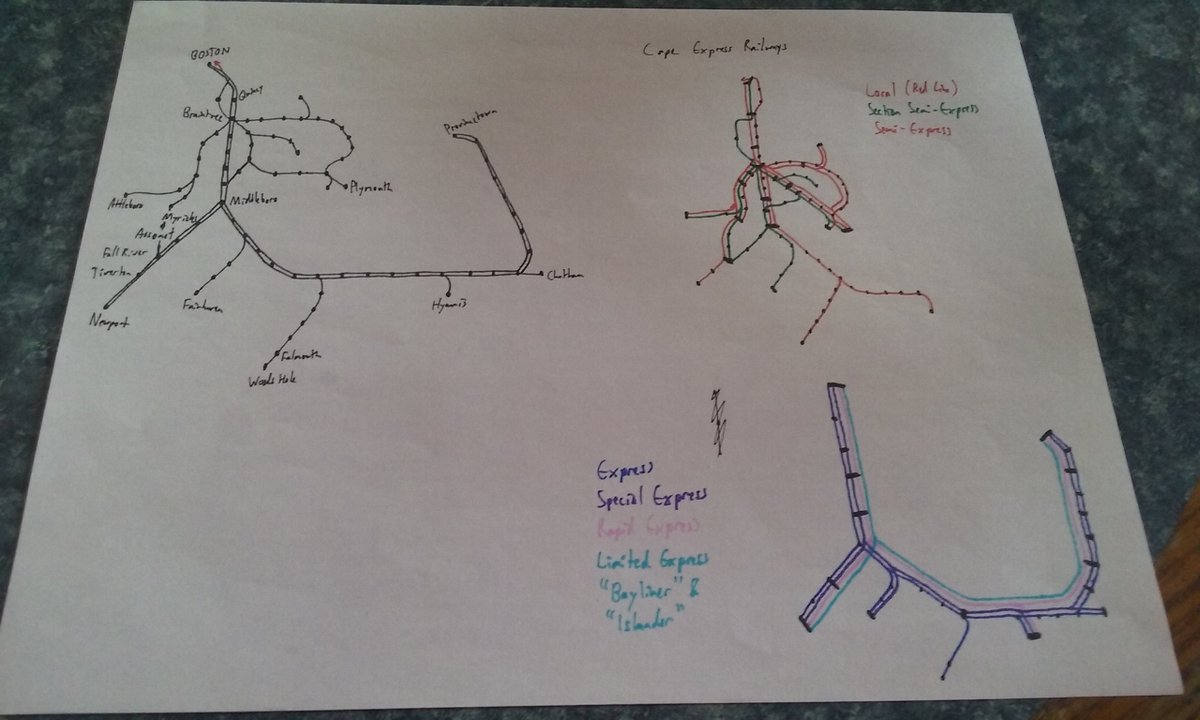 BOSTON
Quincy
Braintree
Attleboro
Myricks
&
Assonet
Fall River
Tiverton
Newport
Middleboro
Plymouth
Provincetown
Fairhaven
Falmouth
Woods Hole
Hyannis
Chatham
Cape Express Railways
Local (Red Line)
Section Semi-Express
Semi-Express
Express
Special Express
Rapid Express
Limited Express
"Bayliner" &
"Islander"